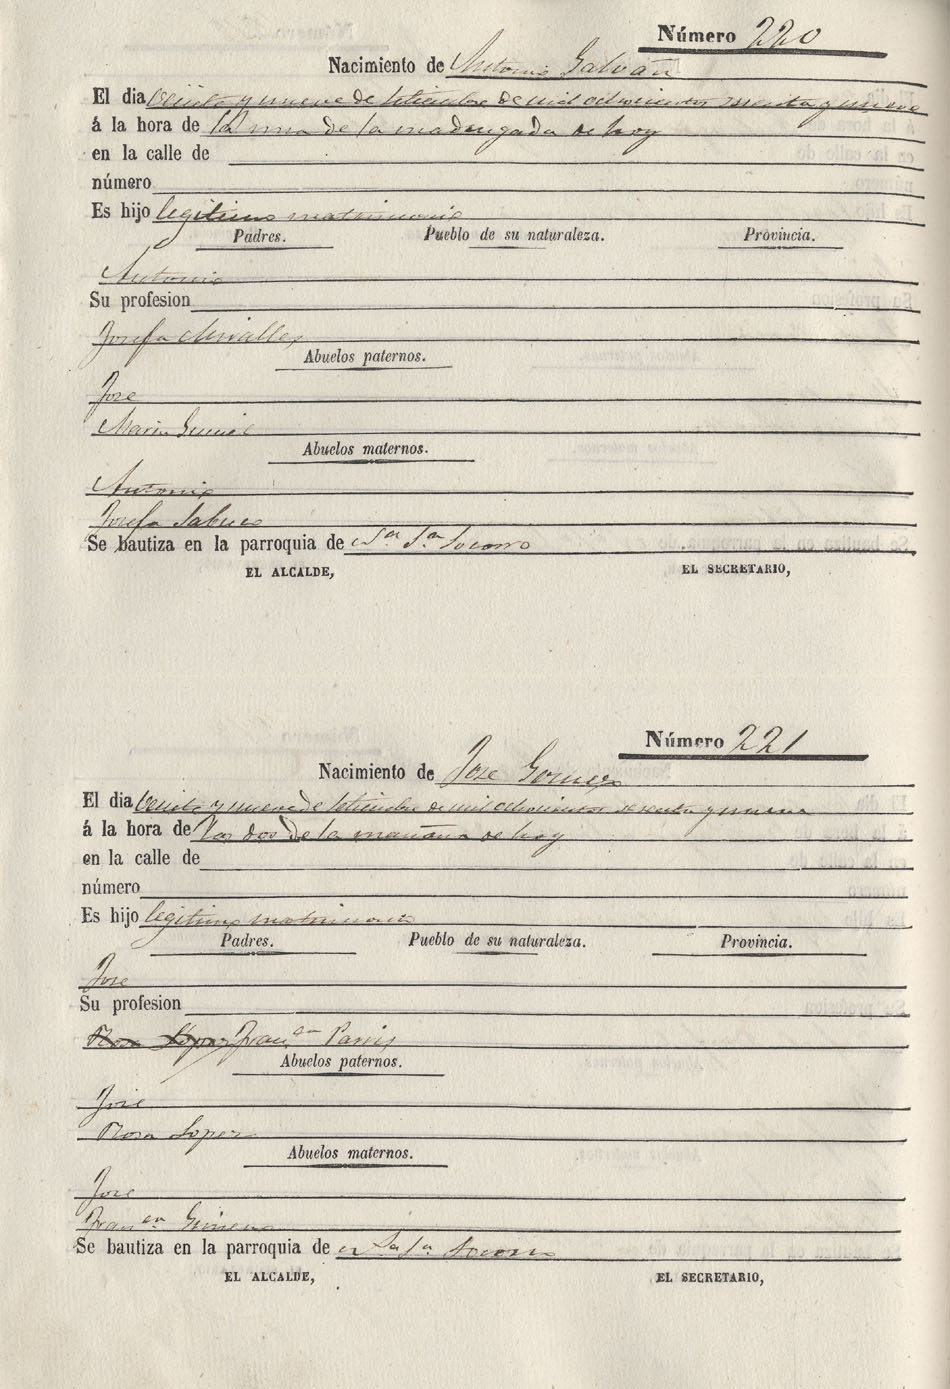 Número 220
Nacimiento de Antonio Galván
El dia veinte y nueve de Setiembre de mil ochocientos sesenta y nueve
á la hora de la una de la madrugada de hoy
en la calle de
número
Es hijo legitimo matrimonio
Padres. Pueblo de su naturaleza. Provincia.
Antonio
Su profesion
Josefa Miralles
Abuelos paternos.
Jose
Maria
Abuelos maternos.
Antonio
Josefa
Se bautiza en la parroquia de Socorro
EL ALCALDE, EL SECRETARIO,
Número 221
Nacimiento de Jose Gomez
El dia veinte y nueve de Setiembre de mil ochocientos sesenta y nueve
á la hora de las dos de la mañana de hoy
en la calle de
número
Es hijo legitimo matrimonio
Padres. Pueblo de su naturaleza. Provincia.
Jose
Su profesion
Rosa Lopez Fran.ca
Abuelos paternos.
Jose
Rosa Lopez
Abuelos maternos.
Jose
Fran.ca
Se bautiza en la parroquia de Socorro
EL ALCALDE, EL SECRETARIO,